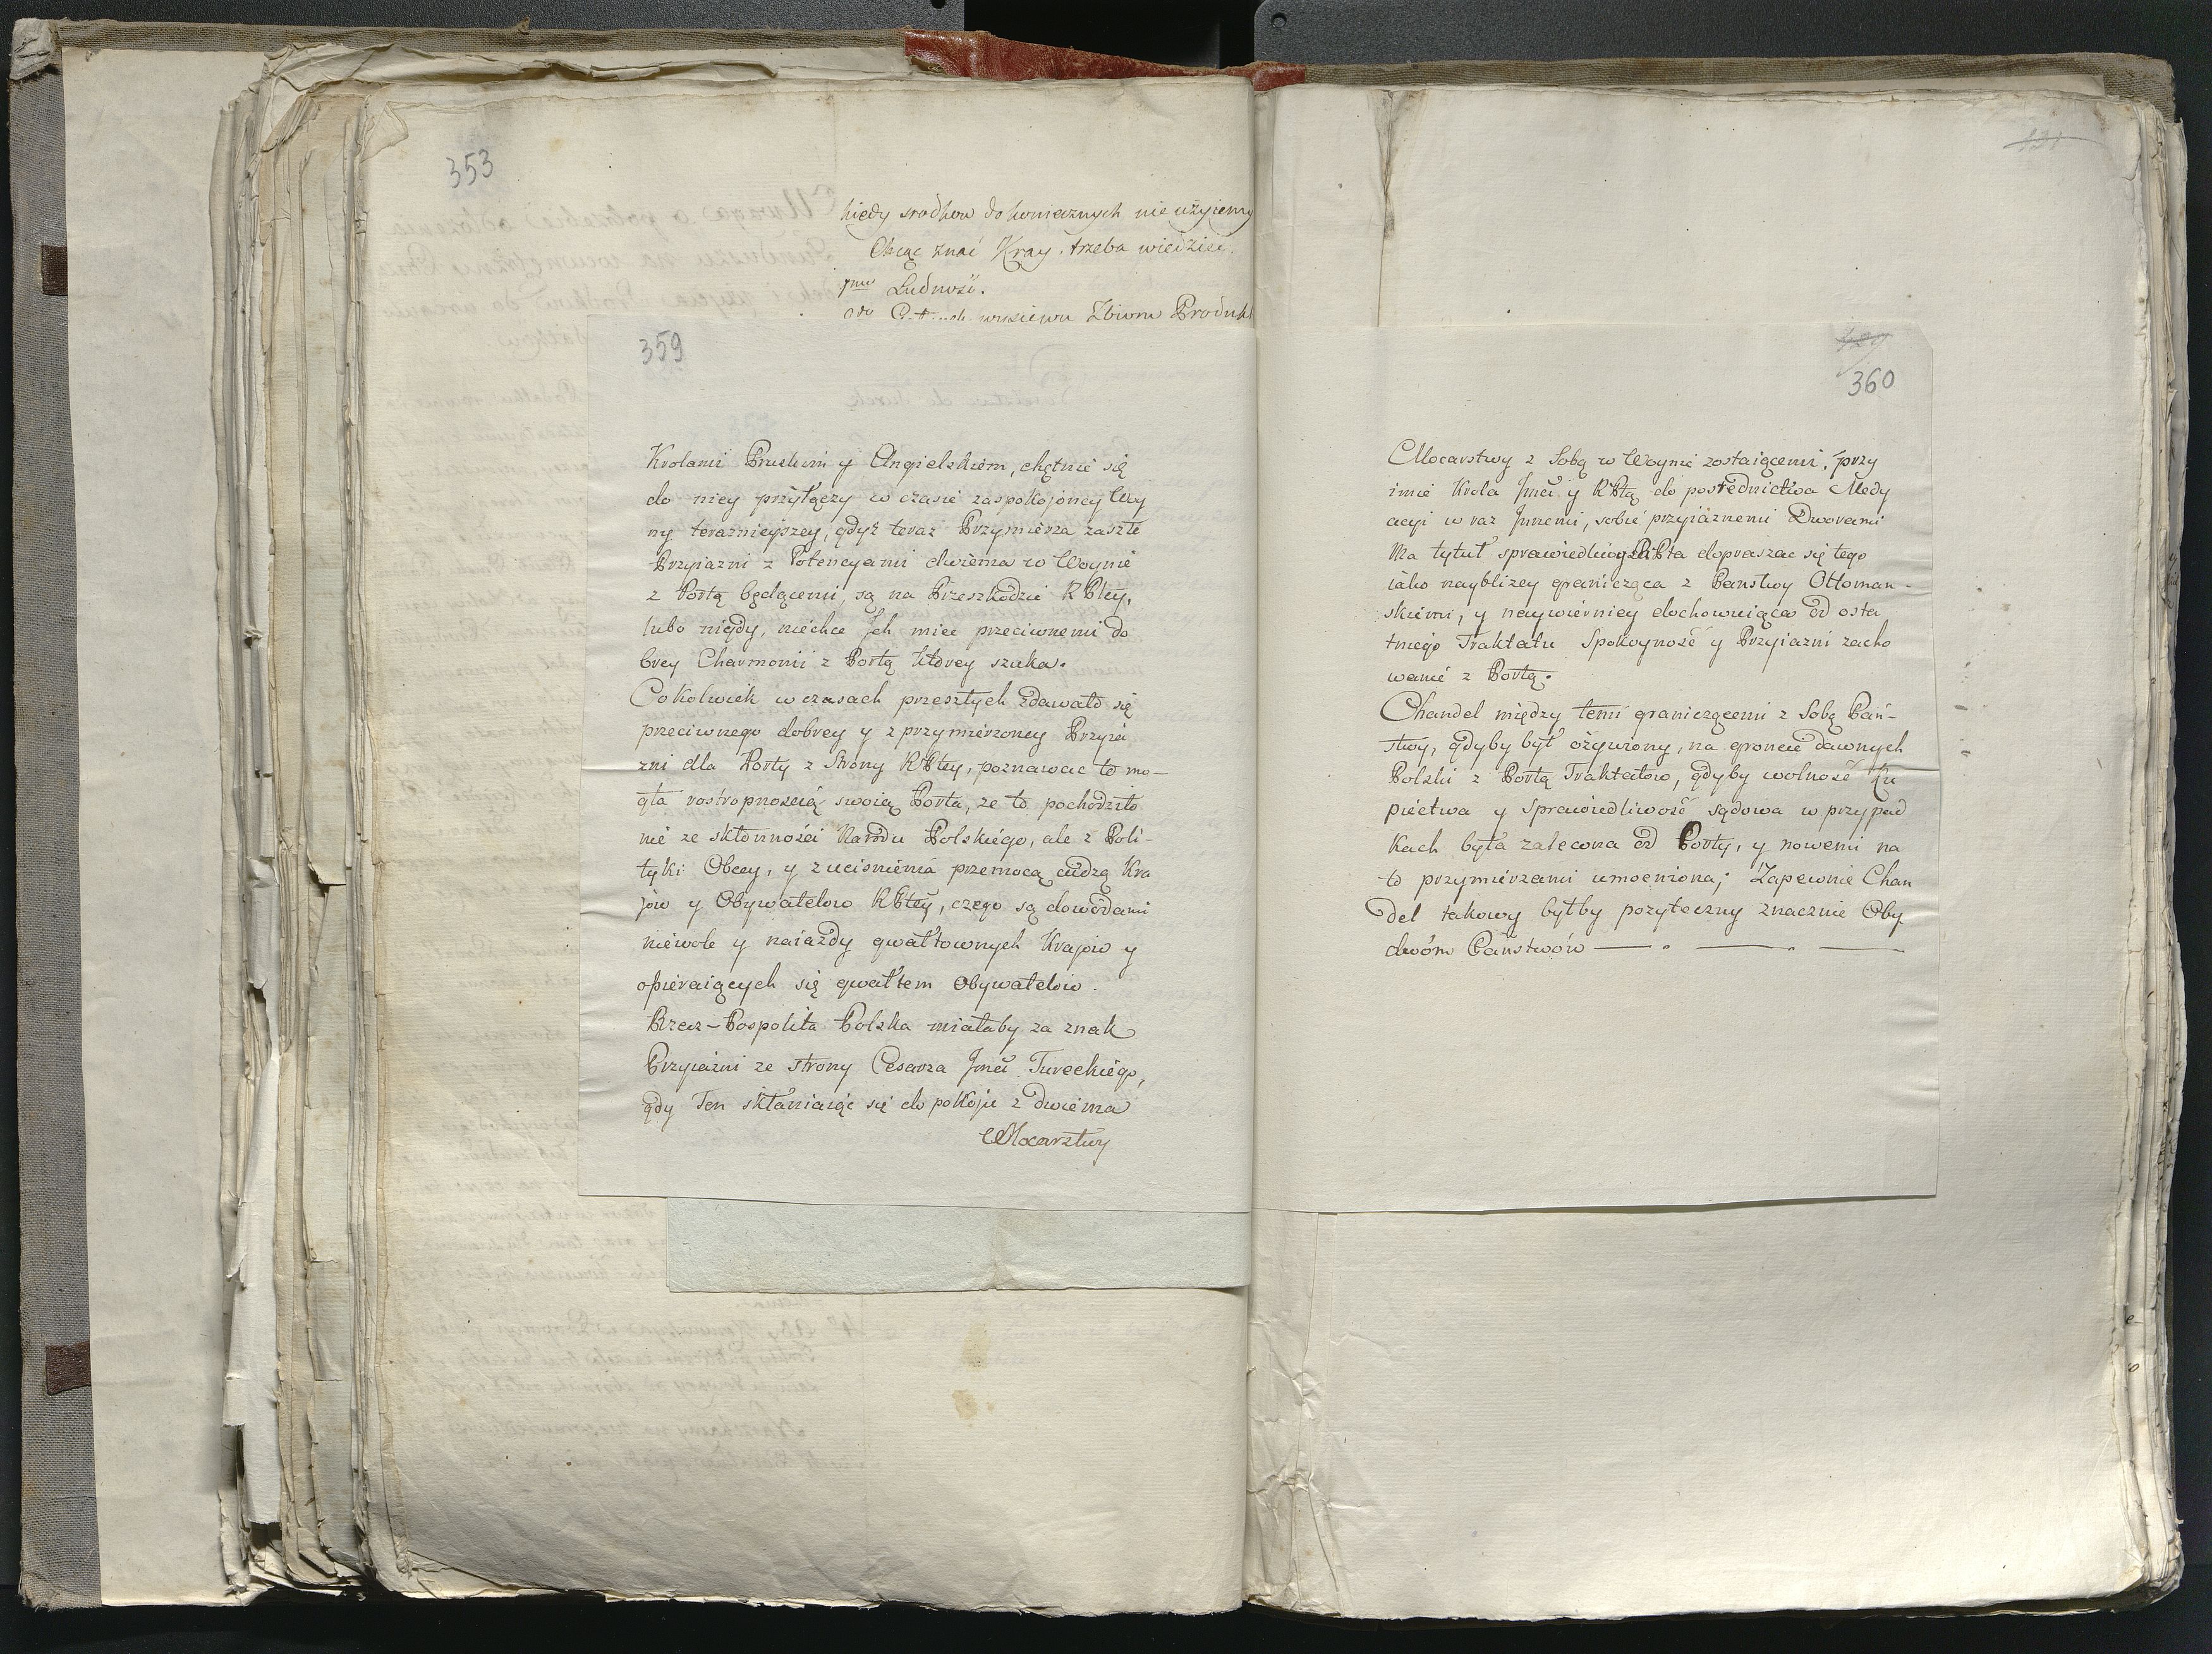 353
kiedy srodkow do koniecznych nie użyiemy
Chcąc znać Kray, trzeba wiedzieć.
pmo Ludność.
wysiewu Zbioru Produk
359
Krolami Pruskim y Angielskiem, chętnie się
do niey przyłączy w czasie zaspokojoney Woy
ny terazniejszey, gdyż teraz Przymierza zaszłe
Przyiazni z Potencyami dwiema w Woynie
z Portą będącemi, są na Przeszkodzie RPltey,
lubo nigdy, niechce Jch mieć przeciwnemi do
brey Charmonii z Portą ktorey szuka.
Cokolwiek w czasach przeszłych zdawało się
przeciwnego dobrey y zprzymierzoney Przyia
zni dla Porty z Strony RPltey, poznawać to mo-
gła rostropnoscią swoią Porta, ze to pochodziło
nie ze skłonności Narodu Polskiego, ale z Poli-
tyki Obcey, y z ucisnienia przemocą cudzą Kra
jow y Obywatelow RPltey, czego są dowodami
niewole y naiazdy gwałtownych Krajow y
opieraiących się gwałtem Obywatelow.
Rzecz-Pospolita Polska miałaby za znak
Przyiazni ze strony Cesarza Jmci Tureckiego,
gdy Ten skłaniaiąc się do pokoju z dwiema
Mocarstwy
131
429
360
Mocarstwy z Sobą w Woynie zostaiącemi, przy
imie Krola Jmci y RPltą do posrednictwa Medy
acyi w raz Jnnemi, sobie przyiaznemi Dworami
Ma tytuł sprawiedliwy RPlta dopraszac się tego
iako nayblizey granicząca z Panstwy Ottoman-
skiemi, y naywierniey dochowuiąca od osta
tniego Traktatu Spokoyność y Przyiazni zacho
wanie z Portą.
Chandel między temi graniczącemi z Sobą Pań-
stwy, gdyby był ożywiony, na groncie dawnych
Polski z Portą Traktatow, gdyby wolność Ku
piectwa y Sprawiedliwość sądowa w przypad
kach była zalecona od Porty, y nowemi na
to przymierzami umocniona; Zapewnie Chan
del takowy byłby pozyteczny znacznie Oby
dwóm Państwów